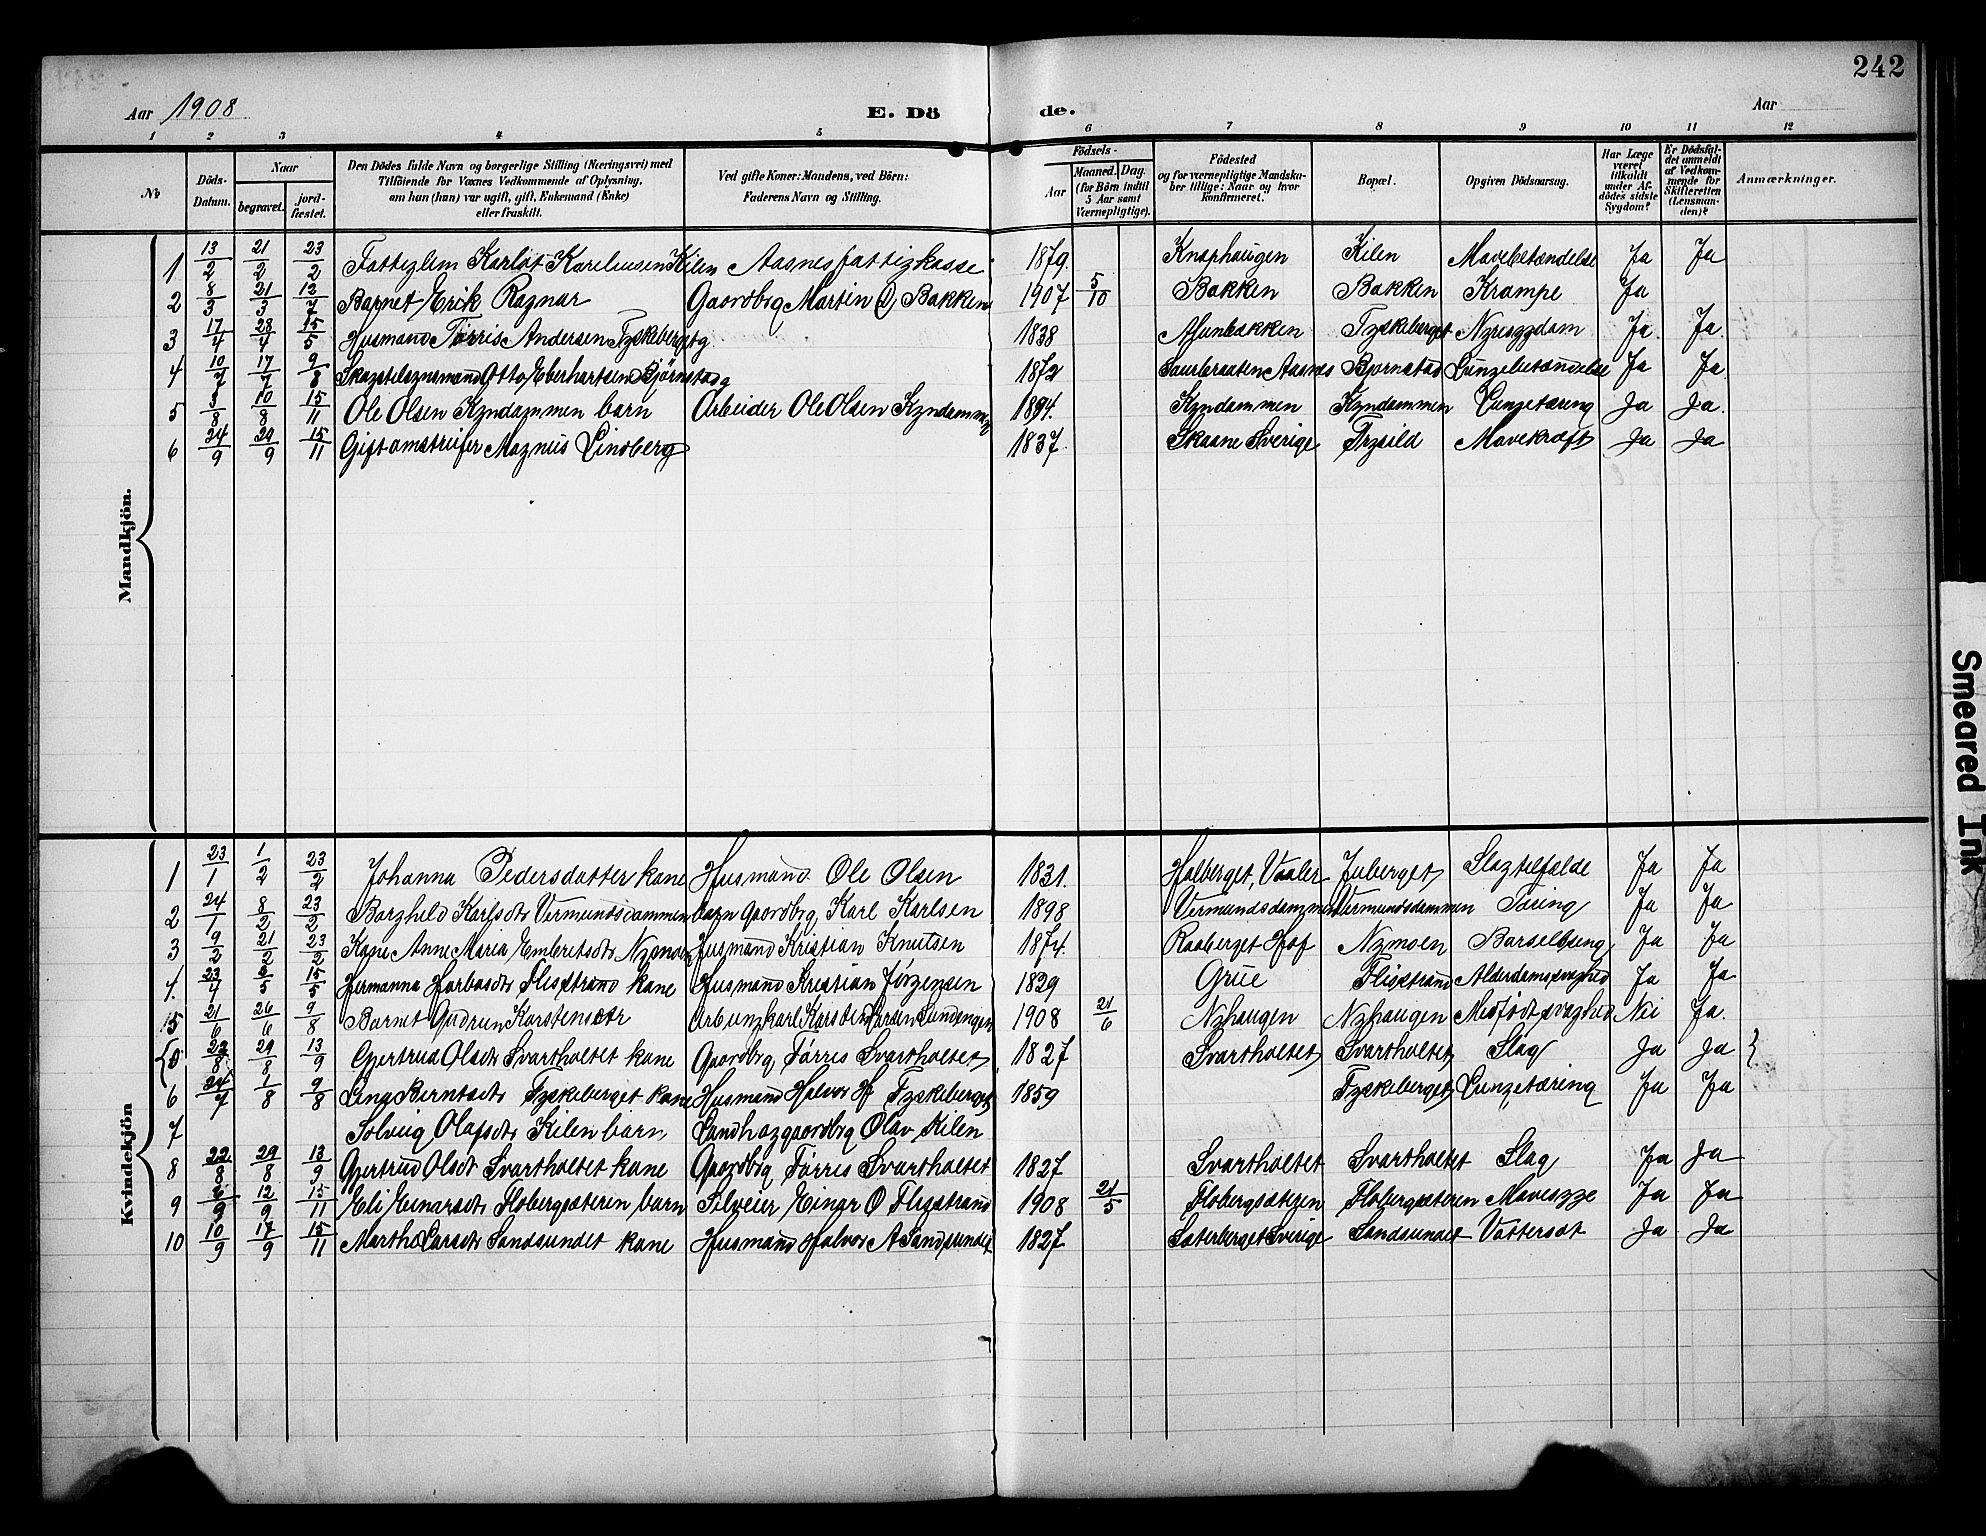 242
Aar 1908 E. Dö de. Aar
1 2 3 4 5 6 7 8 9 10 11 12
№ Döds-Datum. Naar begravet. jord-fæstet. Den Dödes fulde Navn og borgerlige Stilling (Næringsvei) med Tilföiende for Voxnes Vedkommende af Oplysning, om han (hun) var ugift, gift, Enkemand (Enke) eller fraskilt. Ved gifte Koner: Mandens, ved Börn: Faderens Navn og Stilling. Födsels- Aar Maaned. Dag. (for Börn indtil 5 Aar samt Værnepligtige). Födested og for værnepligtige Mandskaber tillige: Naar og hvor konfirmeret. Bopæl. Opgiven Dödsaarsag. Har Læge været tilkaldt under Afdödes sidste Sygdom? Er Dödsfaldet anmeldt af Vedkommende for Skifteretten (Lensmanden)? Anmærkninger.
Mandkjön.
1 13/2 21/2 23/2 Fattiglem Karlot Karelius­en Kilen Aasnes fattigkasse 1879. Knaphaugen Kilen Mavebetændelse Ja Ja
2 8/3 21/3 12/7 Barnet Erik Ragnar Gaardbrg Martin O Bakken 1907 5/10 Bakken Bakken Krampe Ja
3 17/4 28/4 15/5 Husmand Tørris Andersen Tyskeberget g 1838 Tyskeberget Nyresygdom Ja. Ja.
4 10/7 17/7 9/8 Otto Eberhartsen Bjørnstad g 1872 Aasnes Bjørnstad Lungebetændelse Ja Ja
5 3/8 10/8 15/11 Ole Olsen Kyndammen barn Arbeider Ole Olsen Kyndammen 1894. Kyndammen Kyndammen Lungetæring Ja Ja.
6 24/9 29/9 15/11 Gift omstreifer Magnus Lindberg 1837 Skaane Sverige Trysild Mavekræft Ja Ja
Kvindekjön
1 23/1 1/2 23/2 Johanna Pedersdatter kone Husmand Ole Olsen 1831. Halberget, Vaaler Juberget Slagtilfælde Ja Ja
2 24/1 8/2 23/2 Borghild Karlsdtr Vermundsdammen barn Gaardbrg Karl Karlsen 1898 Vermundsdammen Vermundsdammen Tæring Ja Ja
3 9/2 21/2 23/2 Kone Anne Maria Embretsdtr Nymoen Husmand Kristian Knutsen 1874. Raaberget Hof Nymoen Barselseng Ja Ja
4. 23/4 2/5 15/5 Hermanna Flisstrand kone Husmand Kristian Jørgensen 1829 Grue Flisstrand Alderdomssvaghed Ja Ja
5 21/6 26/6 9/8 Barnet Gudrun Karstensdtr Karsten Larsen 1908 21/6 Nyhaugen Nyhaugen Medfødt svaghed Nei Ja.
{5 22/8 29/8 13/9 Gjertrud Olsdtr Svartholtet kone Gaardbrg Tørris Svartholtet 1827 Svartholtet Svartholtet Slag Ja Ja }
6 24/7 1/8 9/8 Lina Berntsdtr Tyskeberget kone Husmand Halvor H Tyskeberget 1859 Tyskeberget Lungetæring Ja Ja
7 Solveig Olafsdtr Kilen barn Landhg gaardbrg Olav Kilen
8 22/8 29/8 13/9 Gjertrud Olsdt Svartholtet kone Gaardbrg Tørris Svartholtet 1827 Svartholtet Svartholtet Slag Ja Ja
9 6/9 12/9 15/11 Eli Einarsdtr Flobergsæteren barn Einar O Flisstrand 1908 21/5 Flobergsæteren Flobergsæteren Mavesyge Ja Ja
10 10/9 17/9 15/11 Marthe Larsdtr Sandsundet kone Husmand Halvor A Sandsundet 1827 Sæterberget Sverige Sandsundet Vattersot Ja Ja
Smeared Ink